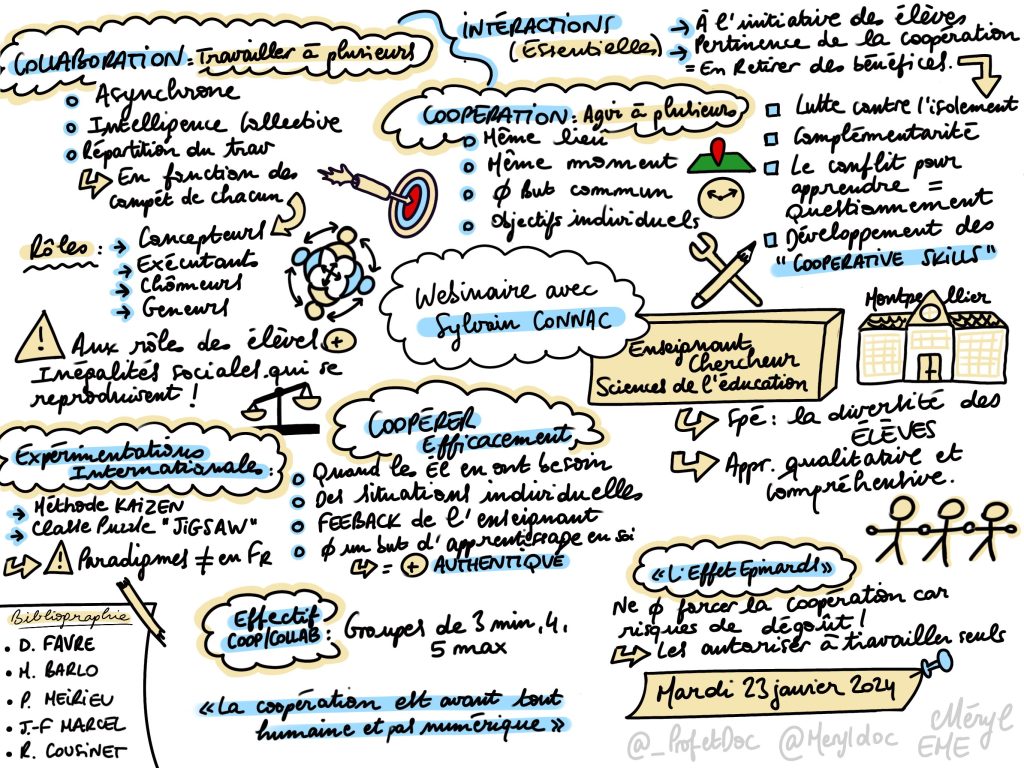 COLLABORATION : Travailler à plusieurs
Asynchrone
Intelligence Collective
Répartition du trav
En fonction des
compét de chacun
Rôles :
Concepteurs
Exécutants
Chômeurs
Geneurs
Aux rôles des élèves. +
Inégalités sociales qui se
reproduisent !
INTÉRACTIONS
(Essentielles)
À l'initiative des élèves
Pertinence de la coopération
= En Retirer des bénéfices.
COOPÉRATION : Agir à plusieurs
Même lieu
Même moment
Ø But commun
Objectifs individuels
Lutte contre l'isolement
Complémentarité
Le conflit pour
apprendre =
Questionnement
Développement des
"COOPERATIVE SKILLS"
Webinaire avec
Sylvain CONNAC
Enseignant
Chercheur
Sciences de l'éducation
Montpellier
Spé : la diversité des
ÉLÈVES
Appr. qualitative et
compréhensive.
Expérimentations
Internationales :
Méthode KAIZEN
Classe Puzzle "JIGSAW"
Paradigmes ≠ en FR
COOPÉRER
Efficacement
Quand les El en ont besoin
Des situations individuelles
FEEBACK de l'enseignant
Ø un but d'apprentissage en soi
= + AUTHENTIQUE
«L'Effet Epinards»
Ne Ø forcer la coopération car
risques de dégoût !
Les autoriser à travailler seuls
Bibliographie
• D. FAVRE
• M. BARLO
• P. MEIRIEU
• J.-F MARCEL
• R. COUSINET
Effectif
COOP/COLLAB :
Groupes de 3 min, 4,
5 max
«La coopération est avant tout
humaine et pas numérique»
Mardi 23 janvier 2024
@_ProfetDoc @Meryldoc
Méryl
EME